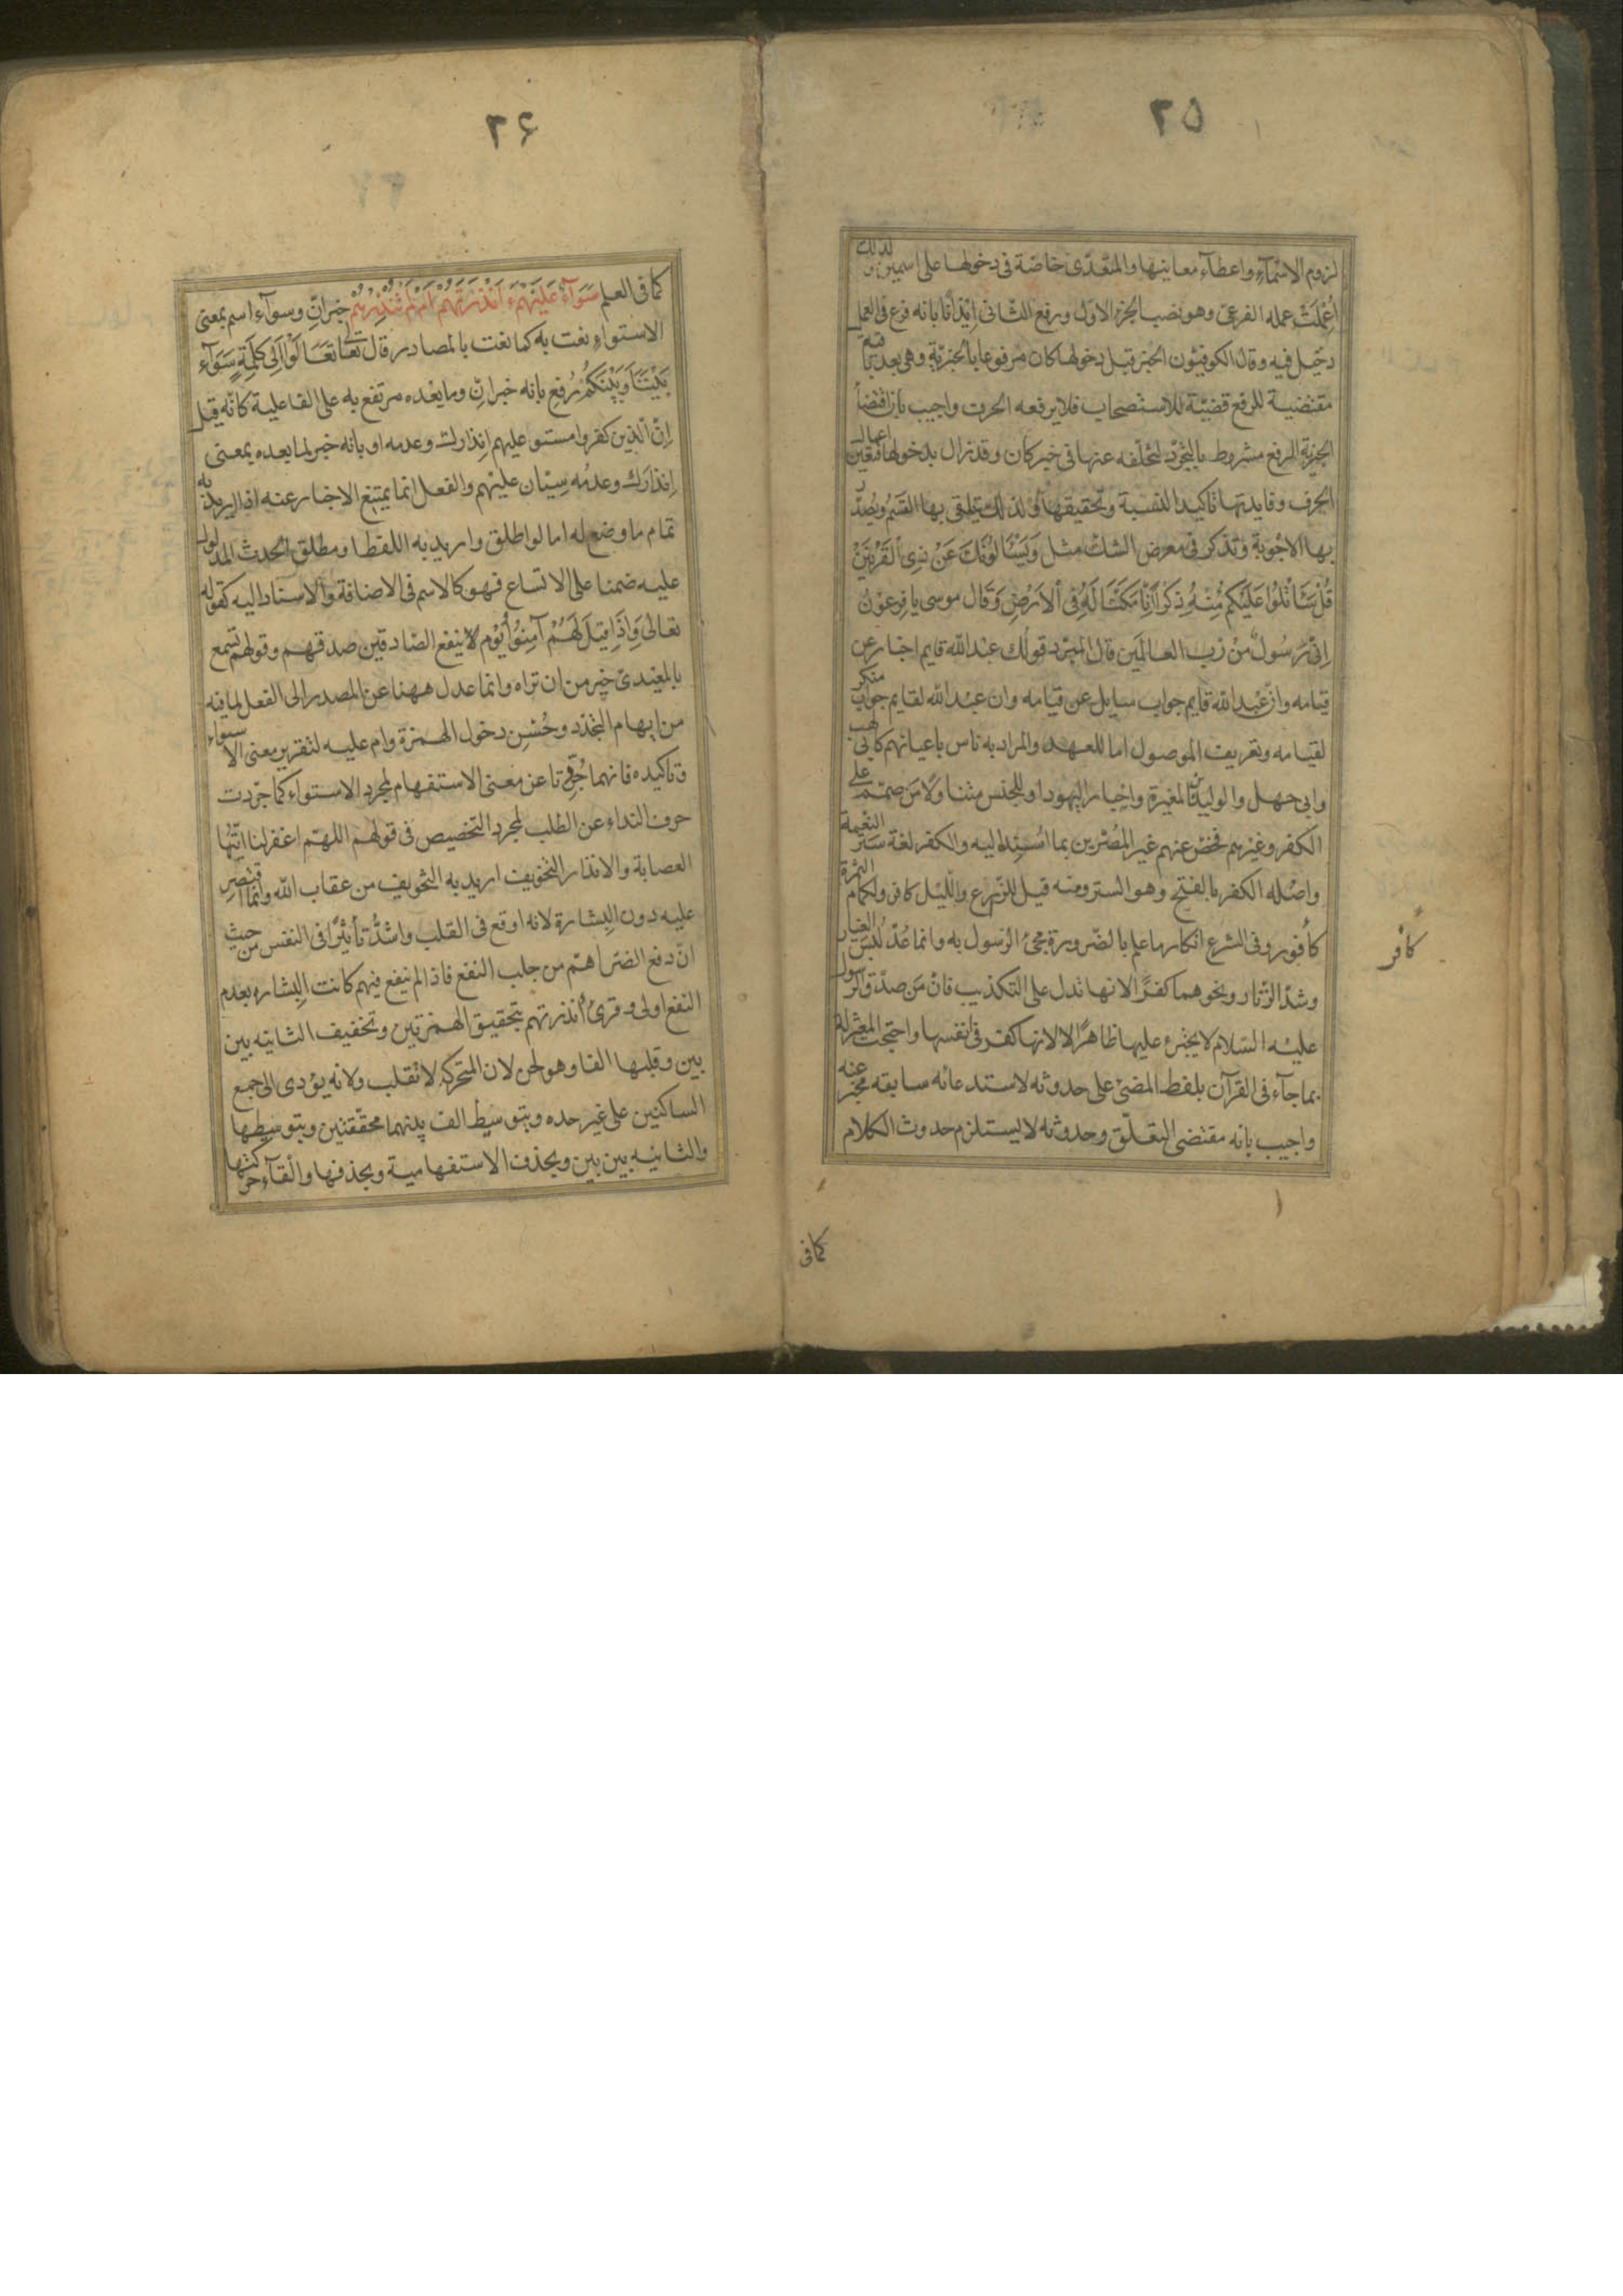 ٢٥
لزوم الاسمآء واعطآء معانيها والمتعدّى خاصّة فى دخولها على اسمين و لذلك
اُعْمِلَتْ عمله الفرعىّ وهو نصب الجزء الاوّل ورفع الثانى ايذانا بانه فرع فى العمل
دخيل فيه وقال الكوفيّون الخبر قبل دخولها كان مرفوعا بالخبريّة وهى بعد باقية
مقتضية للرفع قضيّة للاستصحاب فلا يرفعه الحرف واجيب بان اقتضآ
الخبريّة الرفع مشروط بالتجرّد لتخلّفه عنها فى خبر كان وقد زال بدخولها فتعين اعمال
الحرف وفايدتها تاكيد النسبة وتحقيقها ولذلك يتلقى بها القسم ويُصدّر
بها الاجوبة وتذكر فى معرض الشك مثل وَيَسْئَلُونَكَ عَنْ ذِى الْقَرْنَيْنِ
قُلْ سَاَتْلُوا عَلَيْكُم مِّنْهُ ذِكْرًا اِنَّا مَكَّنَّا لَهُ فِى الْاَرْضِ وَقَال موسى يا فِرعَوْنُ
اِنّى رَسُولٌ مِنْ رَبِّ العالَمين قال المبرّد قولك عبد الله قايم اخبار عن
قيامه وانّ عبد الله قايم جواب سايل عن قيامه وان عبد الله لقايم جواب منكر
لقيامه وتعريف الموصول اما للعهد والمراد به ناس باعيانهم كابى لهب
وابى جهل والوليد بن المغيرة واحبار اليهود او للجنس متناولا من صمّم على
الكفر وغيرهم فخصّ عنهم غير المُصرّين بما اسند اليه والكفر لغة ستر النعمة
واصله الكفر بالفتح وهو الستر ومنه قيل للزّرع والليل كافر ولكمام الثمرة
كافور وفى الشرع انكار ما علم بالضّرورة مجئ الرسول به وانما عُدّ لبس الغيار
وشدّ الزنّار ونحوهما كفرًا لانها تدل على التكذيب فانّ من صدّق الرسول
عليه السّلام لا يجترئ عليها ظاهرًا لا لانها كفر فى انفسها واحتجت المعتزلة
بما جآء فى القرآن بلفظ المضىّ على حدوثه لاستدعائه سابقه مخبر عنه
واجيب بانه مقتضى التعلّق وحدوثه لا يستلزم حدوث الكلام
كافر
كما فى
٢۶
كما فى العلم سَوَآءٌ عَلَيْهِمْ ءَاَنْذَرْتَهُمْ اَمْ لَمْ تُنْذِرْهُمْ خبر انّ وسوآء اسم بمعنى
الاستواءِ نعت به كما نعت بالمصادر قال تعا تَعَالَوْا اِلَى كَلِمَةٍ سَوَآءٍ
بَيْنَنَا وَبَيْنَكُمْ رُفِع بانه خبر انّ وما بعده مرتفع به على الفاعلية كانّه قيل
اِنّ الّذين كفروا مستو عليهم اِنذارك وعدمه او بانه خبر لما بعده بمعنى
اِنذارك وعدمُه سِيّان عليْهم والفعل انما يمتنع الاخبار عنه اذا اريد به
تمام ما وضع له اما لو اطلق واريد به اللفظ او مطلق الحدث المدلول
عليه ضمنا على الاتساع فهو كالاسم فى الاضافة والاسناد اليه كقوله
تعالى وَاِذَا قِيلَ لَهُمْ آمِنُوا يَوْم لا ينفع الصّادقين صدقهم وقولهم تسمع
بالمعيدى خير من ان تراه وانما عدل ههنا عن المصدر الى الفعل لما فيه
من ايهام التجدّد وحُسْن دخول الهمزة وام عليه لتقرير معنى الاستواء
وتاكيده فانهما جُرّدتا عن معنى الاستفهام لمجرد الاستواء كما جرّدت
حرف النداء عن الطلب لمجرد التخصيص فى قولهم اللهمّ اغفر لنا ايّتها
العصابة والانذار التخويف اريد به التخويف من عقاب الله وانّما اقتصر
عليه دون البشارة لانه اوقع فى القلب واشدّ تأثيرًا فى النفس من حيث
انّ دفع الضرّ اهمّ من جلب النفع فاذا لم ينفع فيهم كانت البشاره بعدم
النفع اولى وقرئ أنذرتهم بتحقيق الهمزتين وتخفيف الثانيه بين
بين وقلبها الفا وهو لحن لان المتحركة لا تقلب ولانه يؤدى الى جمع
الساكنين على غير حده وبتوسيط الف بينهما محقّقتين وبتوسيطها
والثانيه بين بين وبحذف الاستفهامية وبحذفها والقآء حركتها